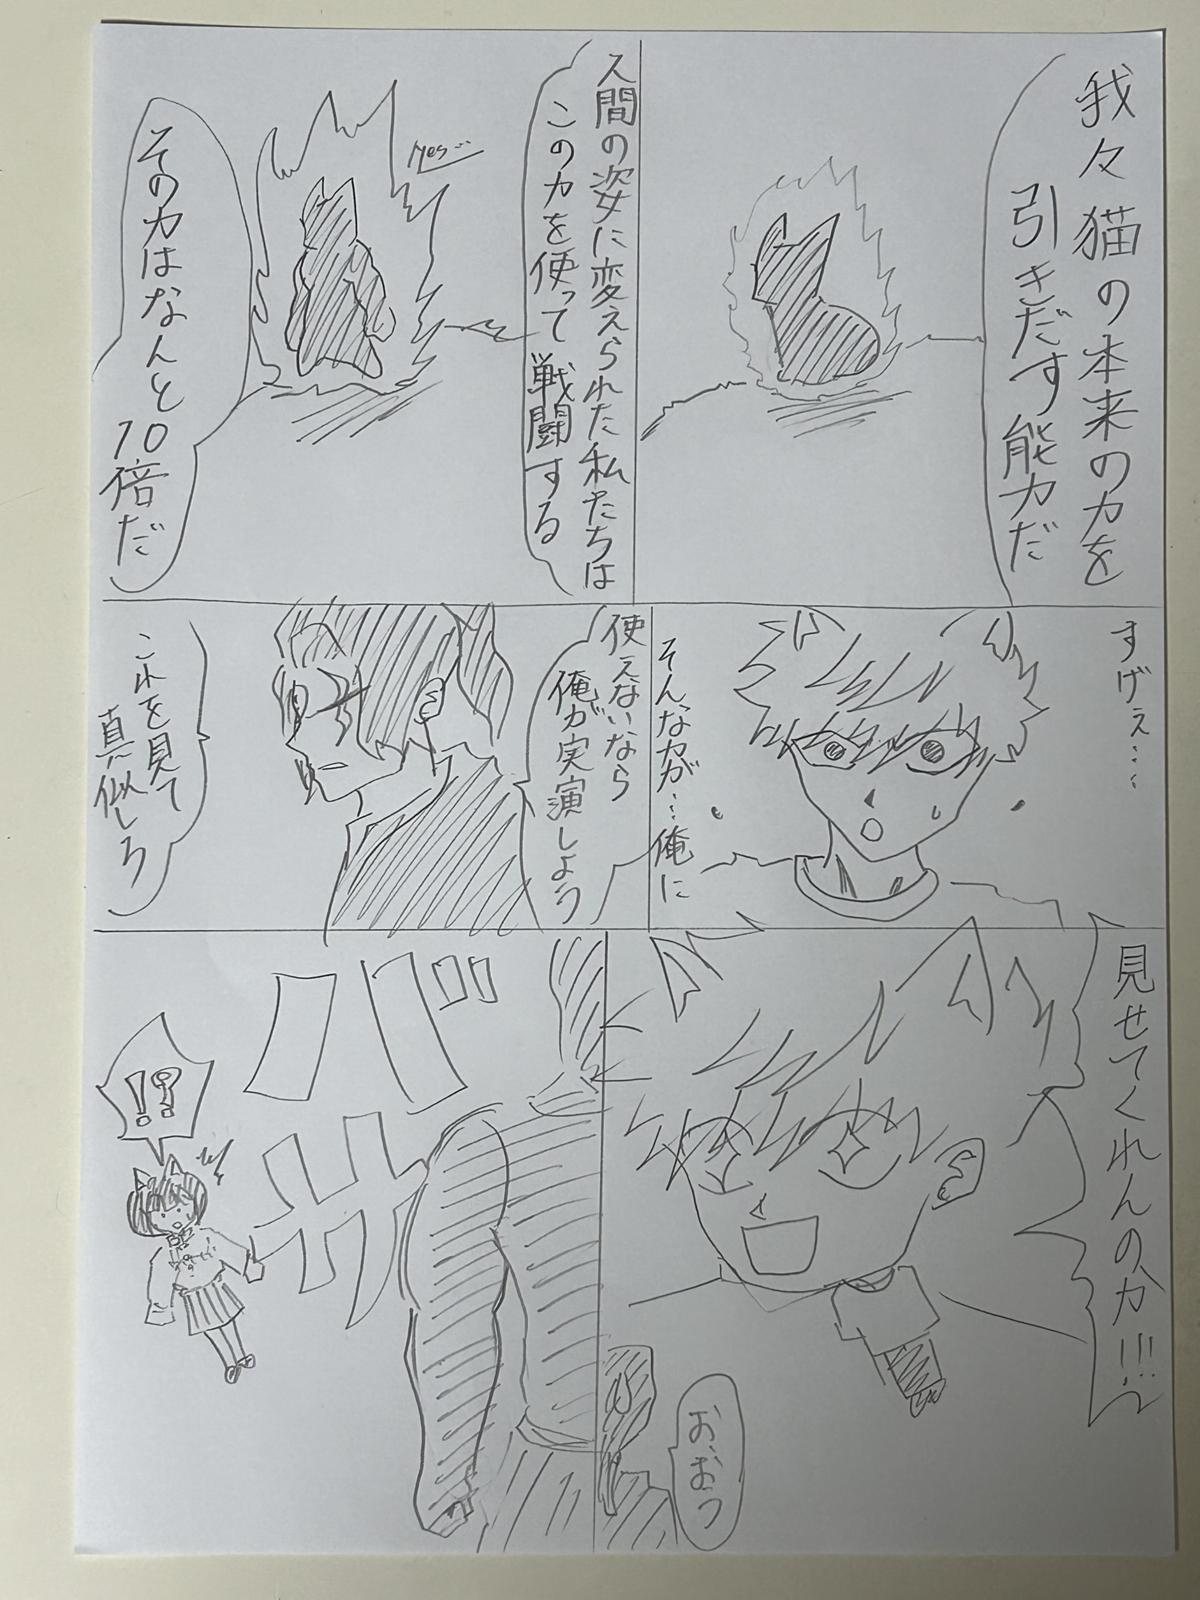 我々猫の本来の力を
引きだす能力だ
人間の姿に変えられた私たちは
この力を使って戦闘する
その力はなんと
10倍だ
すげぇ…
そんな力が…俺に
使えないなら
俺が実演しよう
これを見て
真似しろ
見せてくれんのか!!!
お、おう
バサ
!?